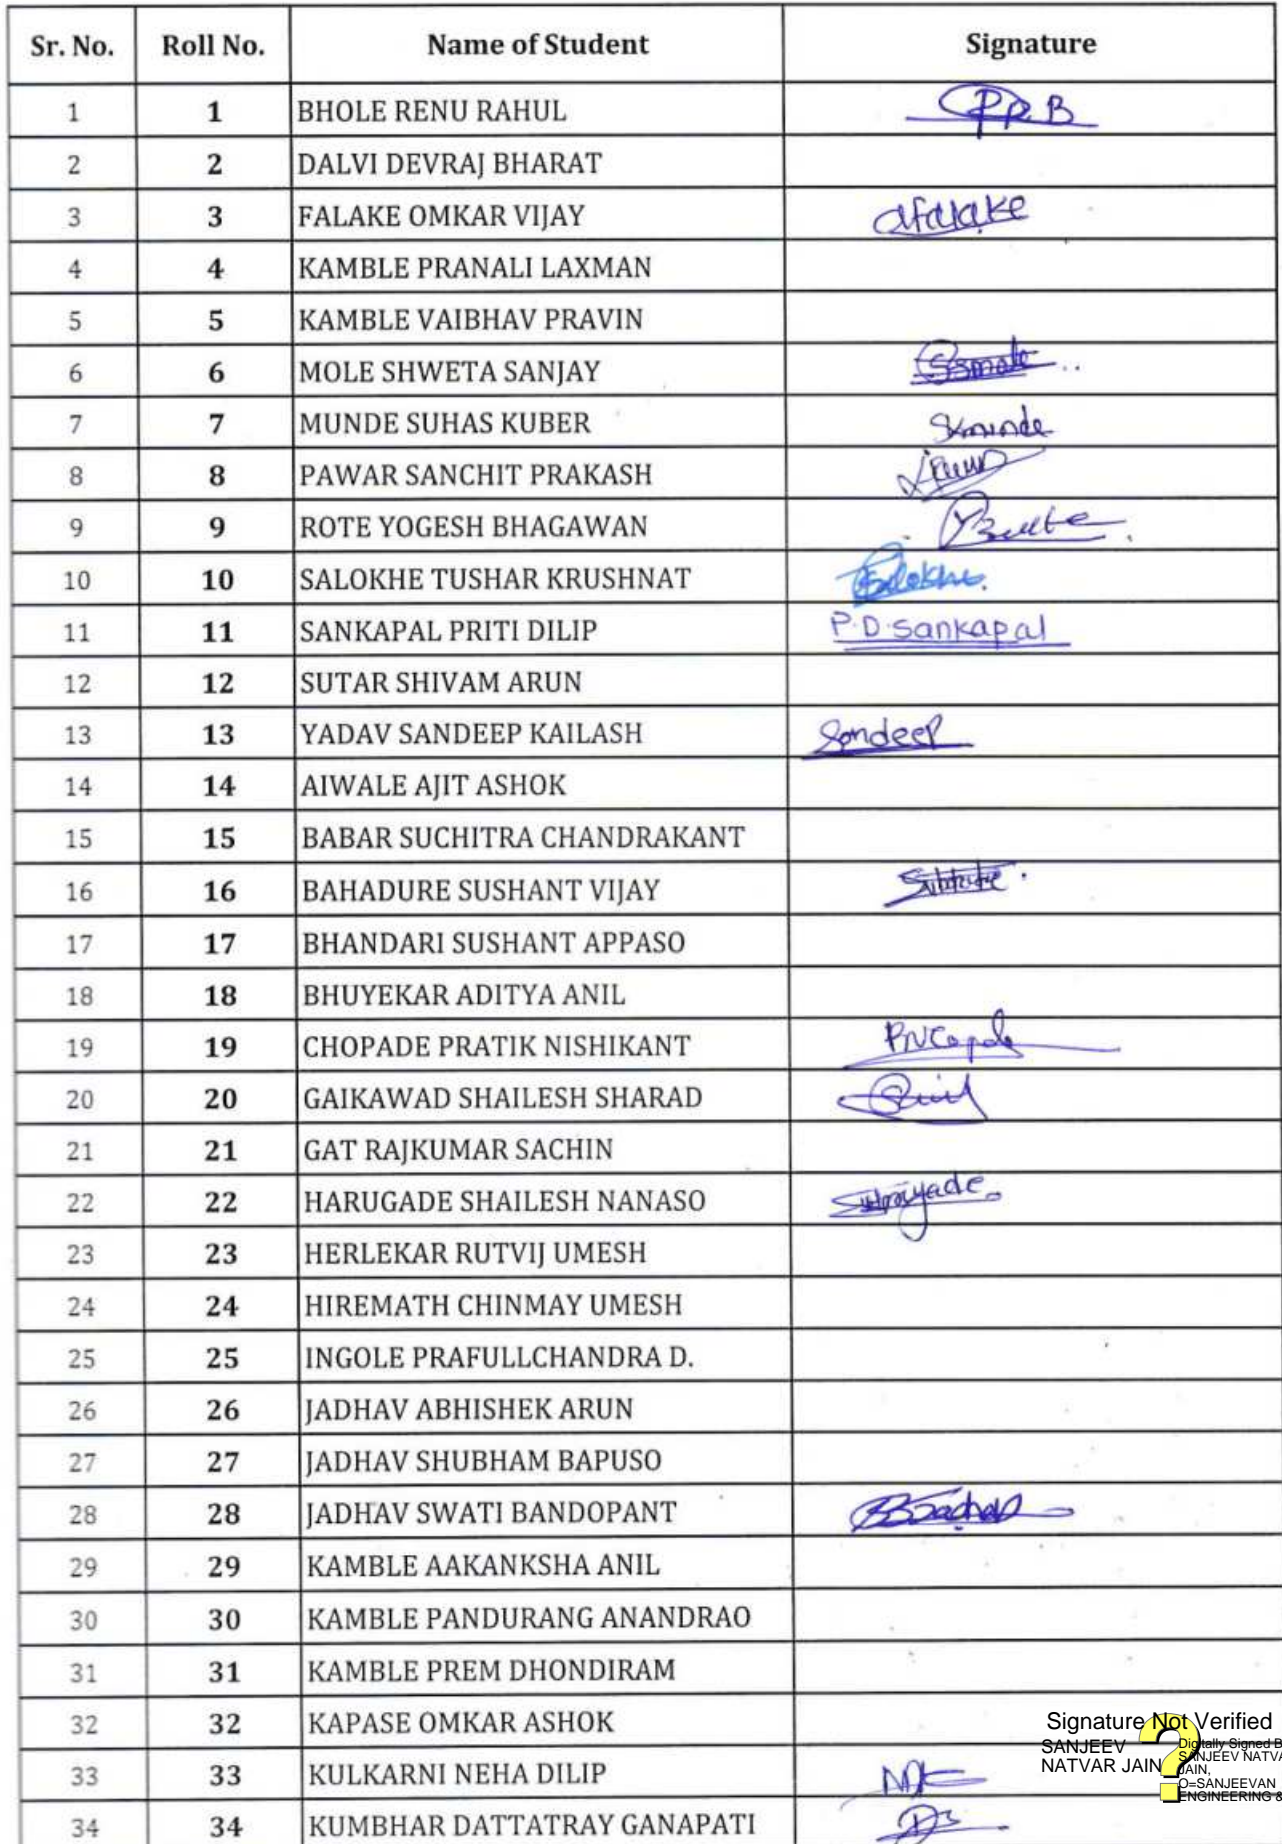 Sr. No. Roll No. Name of Student Signature
1 1 BHOLE RENU RAHUL PRB
2 2 DALVI DEVRAJ BHARAT
3 3 FALAKE OMKAR VIJAY
4 4 KAMBLE PRANALI LAXMAN
5 5 KAMBLE VAIBHAV PRAVIN
6 6 MOLE SHWETA SANJAY
7 7 MUNDE SUHAS KUBER SKmunde
8 8 PAWAR SANCHIT PRAKASH
9 9 ROTE YOGESH BHAGAWAN
10 10 SALOKHE TUSHAR KRUSHNAT
11 11 SANKAPAL PRITI DILIP P.D.Sankapal
12 12 SUTAR SHIVAM ARUN
13 13 YADAV SANDEEP KAILASH Sandeep
14 14 AIWALE AJIT ASHOK
15 15 BABAR SUCHITRA CHANDRAKANT
16 16 BAHADURE SUSHANT VIJAY
17 17 BHANDARI SUSHANT APPASO
18 18 BHUYEKAR ADITYA ANIL
19 19 CHOPADE PRATIK NISHIKANT
20 20 GAIKAWAD SHAILESH SHARAD
21 21 GAT RAJKUMAR SACHIN
22 22 HARUGADE SHAILESH NANASO
23 23 HERLEKAR RUTVIJ UMESH
24 24 HIREMATH CHINMAY UMESH
25 25 INGOLE PRAFULLCHANDRA D.
26 26 JADHAV ABHISHEK ARUN
27 27 JADHAV SHUBHAM BAPUSO
28 28 JADHAV SWATI BANDOPANT
29 29 KAMBLE AAKANKSHA ANIL
30 30 KAMBLE PANDURANG ANANDRAO
31 31 KAMBLE PREM DHONDIRAM
32 32 KAPASE OMKAR ASHOK
33 33 KULKARNI NEHA DILIP
34 34 KUMBHAR DATTATRAY GANAPATI
Signature Not Verified
SANJEEV
NATVAR JAIN
Digitally Signed B
SANJEEV NATVA
JAIN,
O=SANJEEVAN
ENGINEERING &